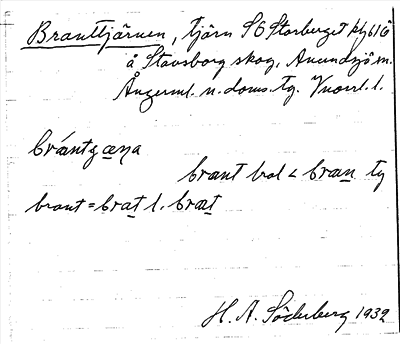 Branttjärnen, tjärn SO Storberget
å Stavsborg skog, Anundsjö sn.
Ångerml. n. doms. tg. Vnorrl. l.
brántgæna
brant bal < bran tg
brant = brat l. bræt
H. A. Söderberg 1932